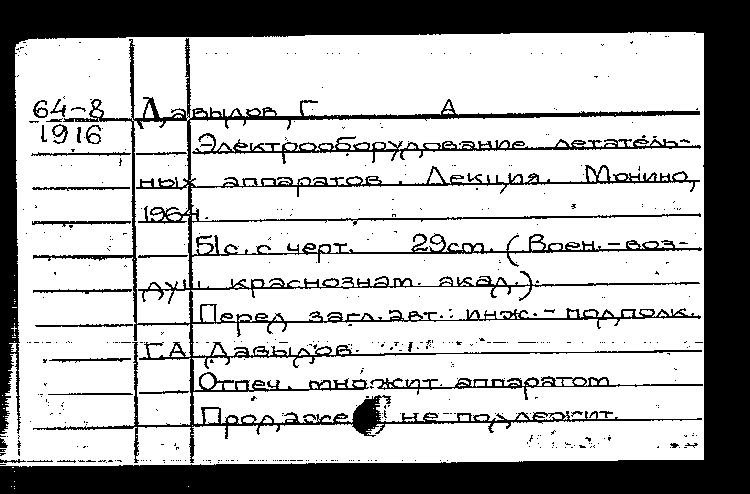 64-8 Давыдов, Г А
1916
Электрооборудование летатель-
ных аппаратов. Лекция. Монино,
1964.
51с. с черт. 29см. (Воен.-воз-
душ. краснознам. акад.).
Перед загл. авт.: инж.- подполк.
Г.А. Давыдов.
Отпеч. множит. аппаратом
Продаже не подлежит.